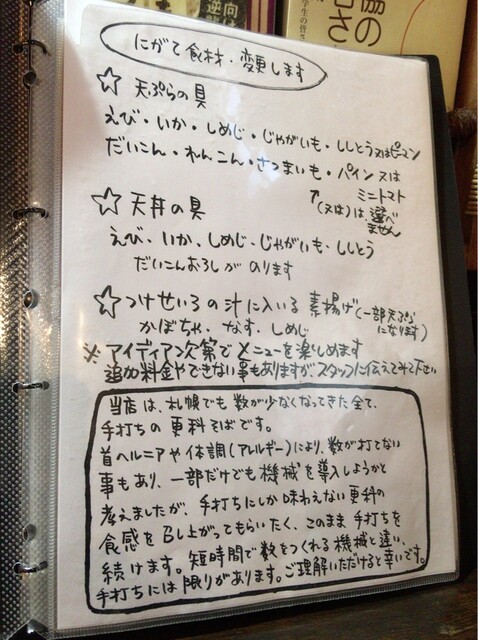 協の
学生の皆さ
向け
逆説
にがて食材・変更します
☆ 天ぷらの具
えび・いか・しめじ・じゃがいも・ししとう又はピーマン
だいこん・れんこん・さつまいも・パイン又は
ミニトマト
↑(又は)は選べません
☆ 天丼の具
えび・いか、しめじ・じゃがいも・ししとう
だいこんおろしがのります
☆ つけせいろの汁に入いる 素揚げ(一部天ぷらになります)
かぼちゃ、なす、しめじ
※ アイディアン次第でメニューを楽しめます
追加料金やできない事もありますがスタッフに伝えてみて下せい
当店は、札幌でも数が少なくなってきた全て、
手打ちの更科そばです。
首ヘルニアや体調(アレルギー)により、数が打てない
事もあり、一部だけでも機械を導入しようかと
考えましたが、手打ちにしか味わえない更科の
食感を召し上がってもらいたく、このまま手打ちを
続けます。短時間で数をつくれる機械と違い、
手打ちには限りがあります。ご理解いただけると幸いです。